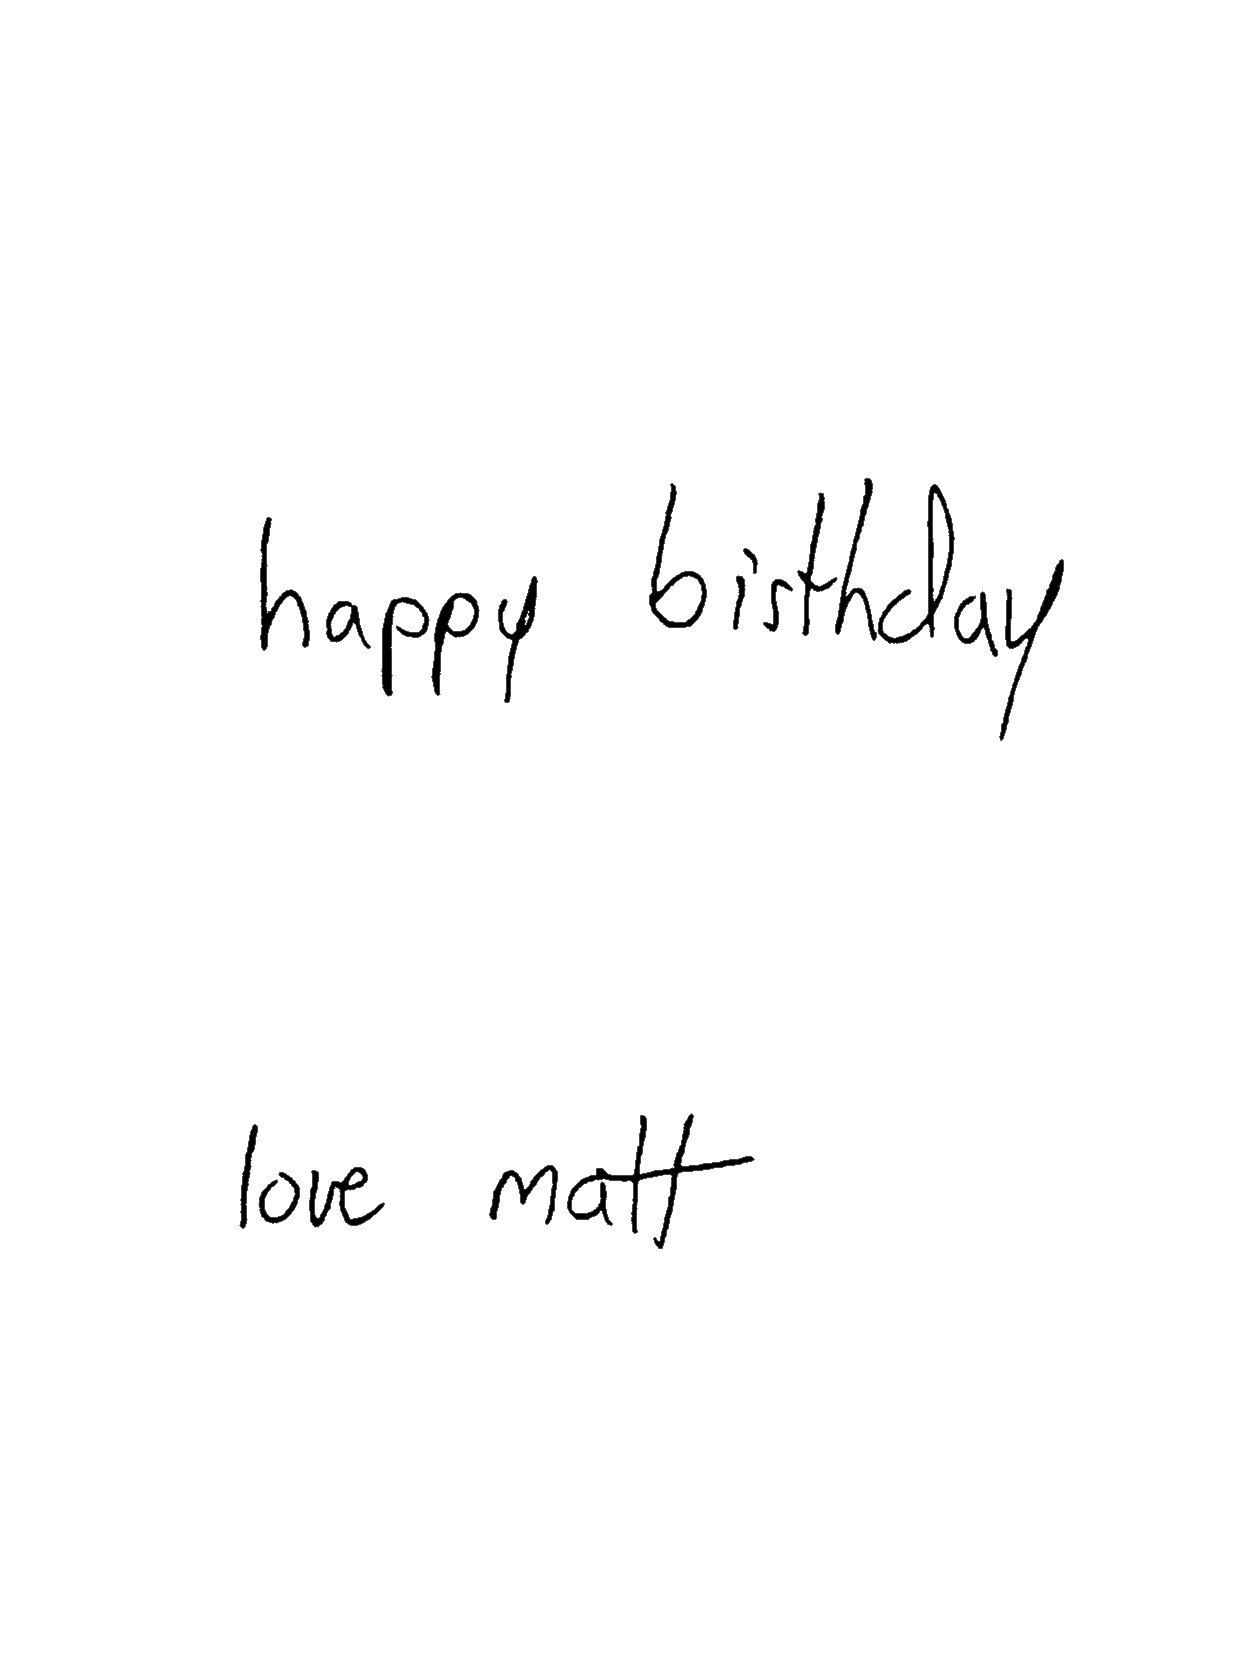 happy birthday
love matt